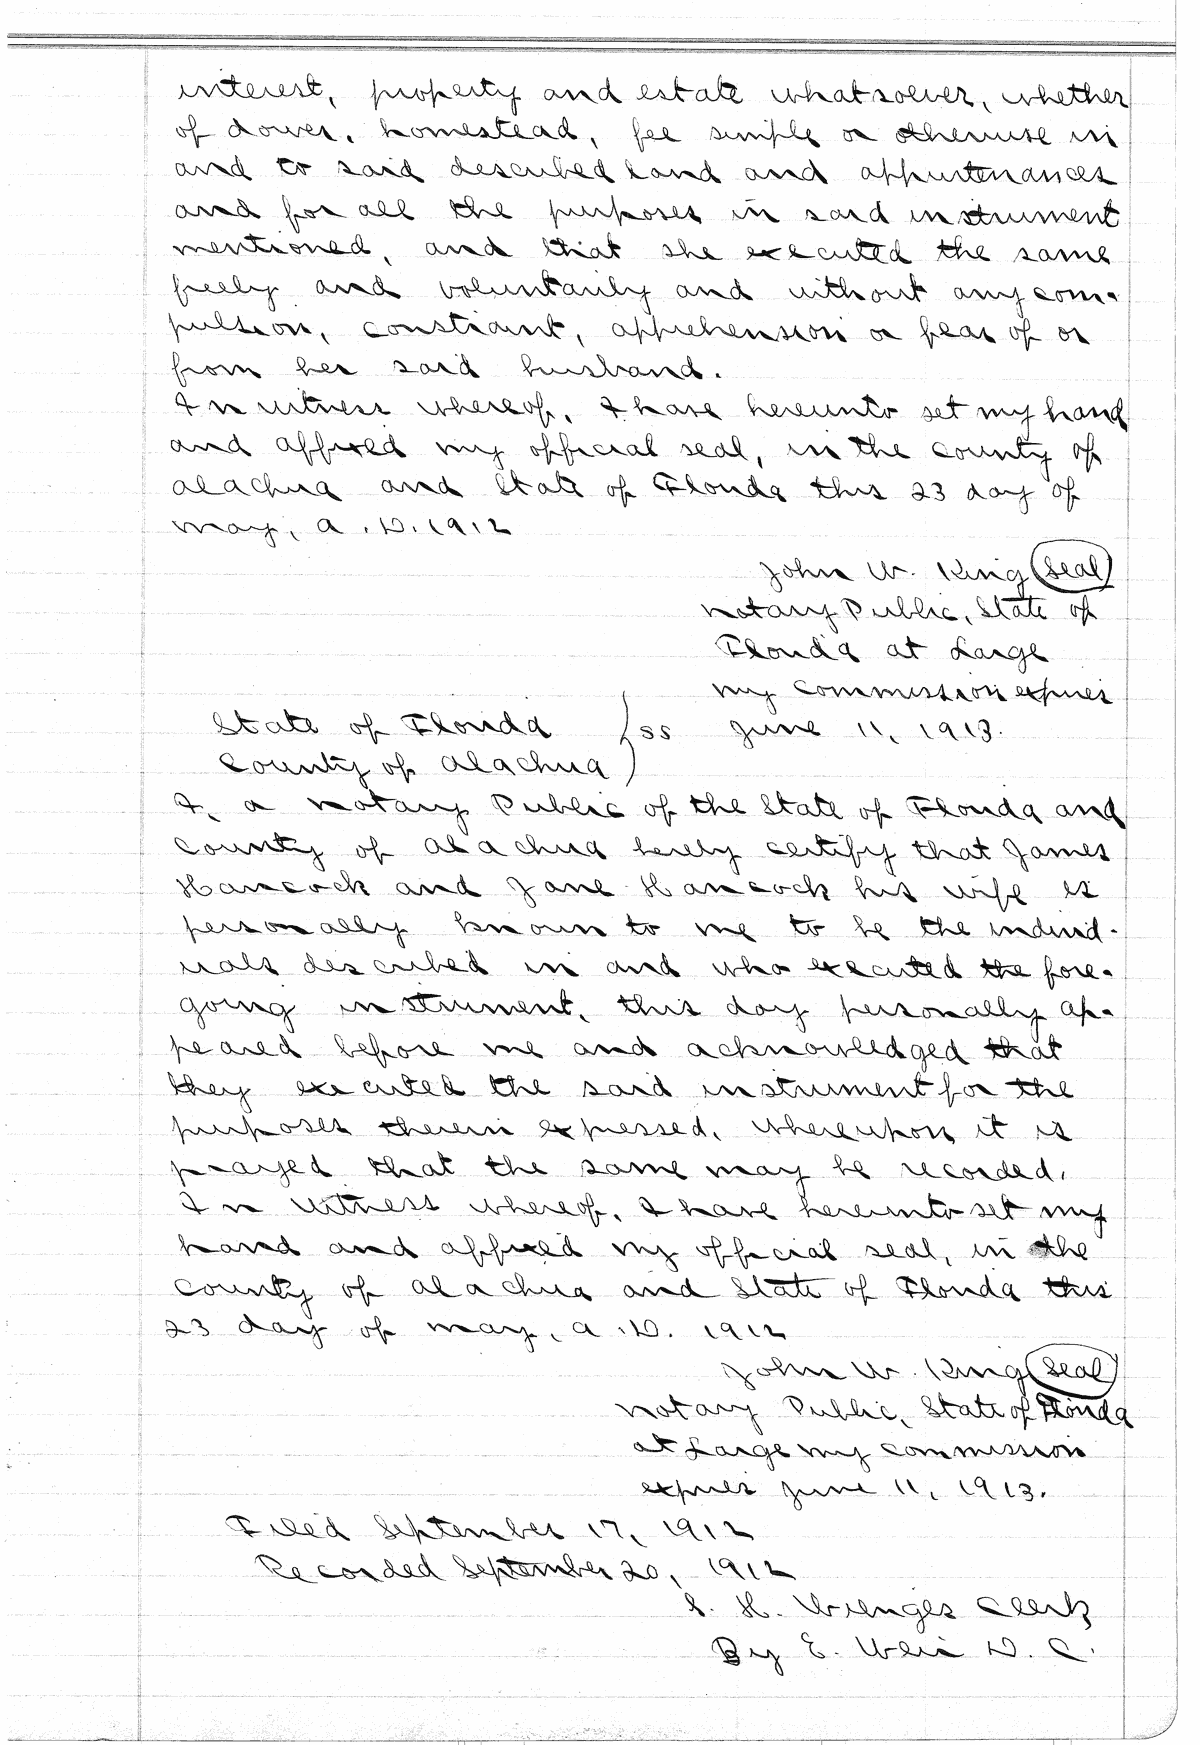 interest, property and estate whatsoever, whether
of dower, homestead, fee simple or otherwise in
and to said described land and appurtenances
and for all the purposes in said instrument
mentioned, and that she executed the same
freely and voluntarily and without any com-
pulsion, constraint, apprehension or fear of or
from her said husband.
In witness whereof, I have hereunto set my hand
and affixed my official seal, in the county of
Alachua and State of Florida this 23 day of
May, A.D. 1912
John W. King (Seal)
Notary Public, State of
Florida at Large
my commission expires
State of Florida } ss June 11, 1913.
County of Alachua }
I, a Notary Public of the State of Florida and
County of Alachua hereby certify that James
Hancock and Jane Hancock his wife is
personally known to me to be the individ-
uals described in and who executed the fore-
going instrument, this day personally ap-
peared before me and acknowledged that
they executed the said instrument for the
purposes therein expressed, whereupon it is
prayed that the same may be recorded.
In witness whereof, I have hereunto set my
hand and affixed my official seal, in the
County of Alachua and State of Florida this
23 day of May, A.D. 1912
John W. King (Seal)
Notary Public, State of Florida
at Large my commission
expires June 11, 1913.
Filed September 17, 1912
Recorded September 20, 1912
S. H. Wienges Clerk
By E. Weir D.C.